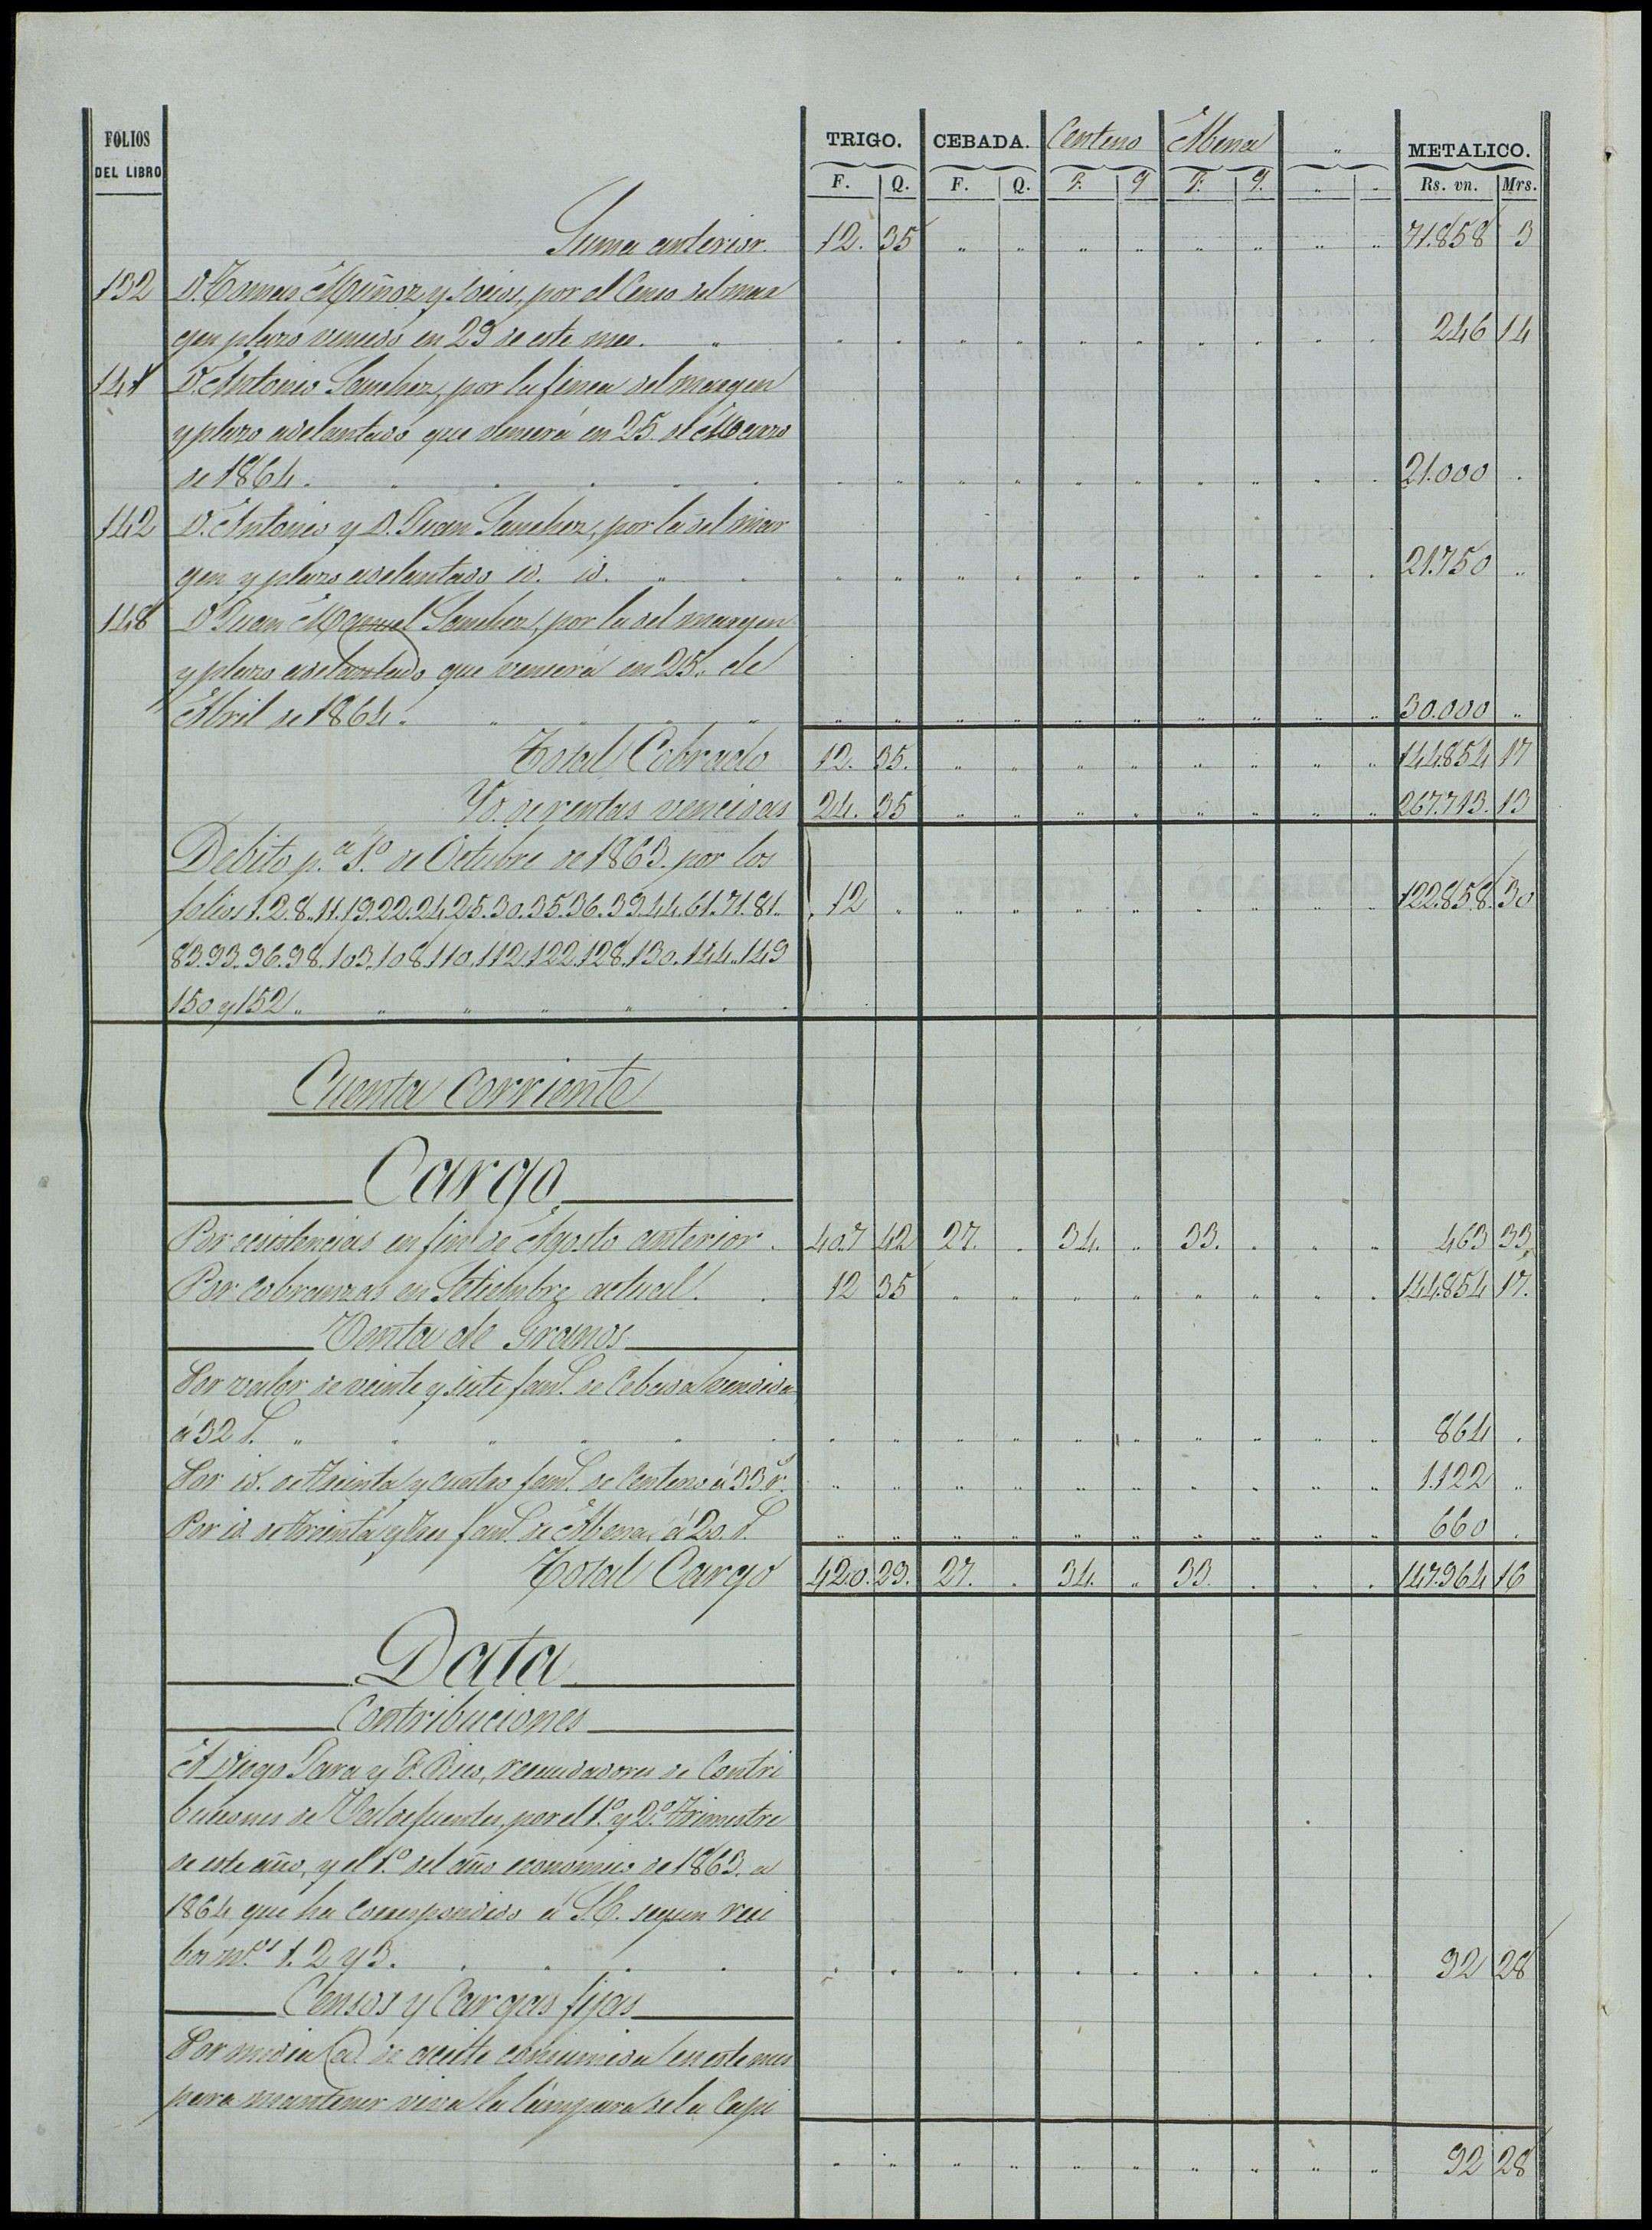 FOLIOS DEL LIBRO TRIGO. CEBADA. Centeno Abena " METALICO.
F. Q. F. Q. F. Q F. Q. " " Rs. vn. Mrs.
Suma anterior. 12. 35 " " " " " " " " 71.858 3
132 D. Tomas Muñoz y socios, por el Censo del mar
gen plazo vencido en 29 de este mes. " " " " " " " " " " " 246 14
141 D. Antonio Sanchez, por la finca del margen
y plazo adelantado que vencerá en 25. de Marzo
de 1864. " " " " " " " " " " 21.000 "
142 D. Antonio y D. Juan Sanchez, por la del mar
gen y plazo adelantado id. id. " " " " " " " " " " " 21.750 "
148 D Juan Manuel Sanchez, por la del margen
y plazo adelantado que vencerá en 25. de
Abril de 1864. " " " " " " " " " " 30.000 "
Total Cobrado 12. 35. " " " " " " " " 144.854 17
Yd. de rentas vencidas 24. 35 " " " " " " " " 267.713. 13
Debito p.ª 1.º de Octubre de 1863. por los
folios 1.2.8.11.19.22.24.25.30.35.36.39.44.61.71.81. 12 " " " " " " " " " 122.858. 30
83.93.96.98.103.108.110.112.122.128.130.144.149
150 y 152 "
Cuenta Corriente
Cargo
Por existencias en fin de Agosto anterior. 407 42 27. . 34. " 33. . " " 463 33
Por cobranzas en Setiembre actual. 12 35 " " " " " " " " 144.854 17.
Venta de Granos
Por valor de veinte y siete fan.s de Cebada vendida
á 32 r.s " " " " " " " " " " 864 .
Por id. de treinta y cuatro fan.s de Centeno á 33 r.s " " " " " " " " " " 1.122 "
Por id de treinta y tres fan.s de Abena á 20. r.s " " " " " " " " " " 660 .
Total Cargo 420. 29. 27. . 34. " 33. . . . 147.964 16
Data
Contribuciones
A Diego Lara y F. Rico, recaudadores de Contri
buciones de Valdefuentes, por el 1.º y 2.º trimestre
de este año, y el 1.º del año economico de 1863. a
1864 que ha correspondido á S.E. segun reci
bos n.os 1. 2 y 3. " " " " " " " " " " 92 28
Censos y Cargas fijas
Por media @ de aceite consumida en este mes
para mantener viva la lámpara de la Capi
" " " " " " " " " " 92 28